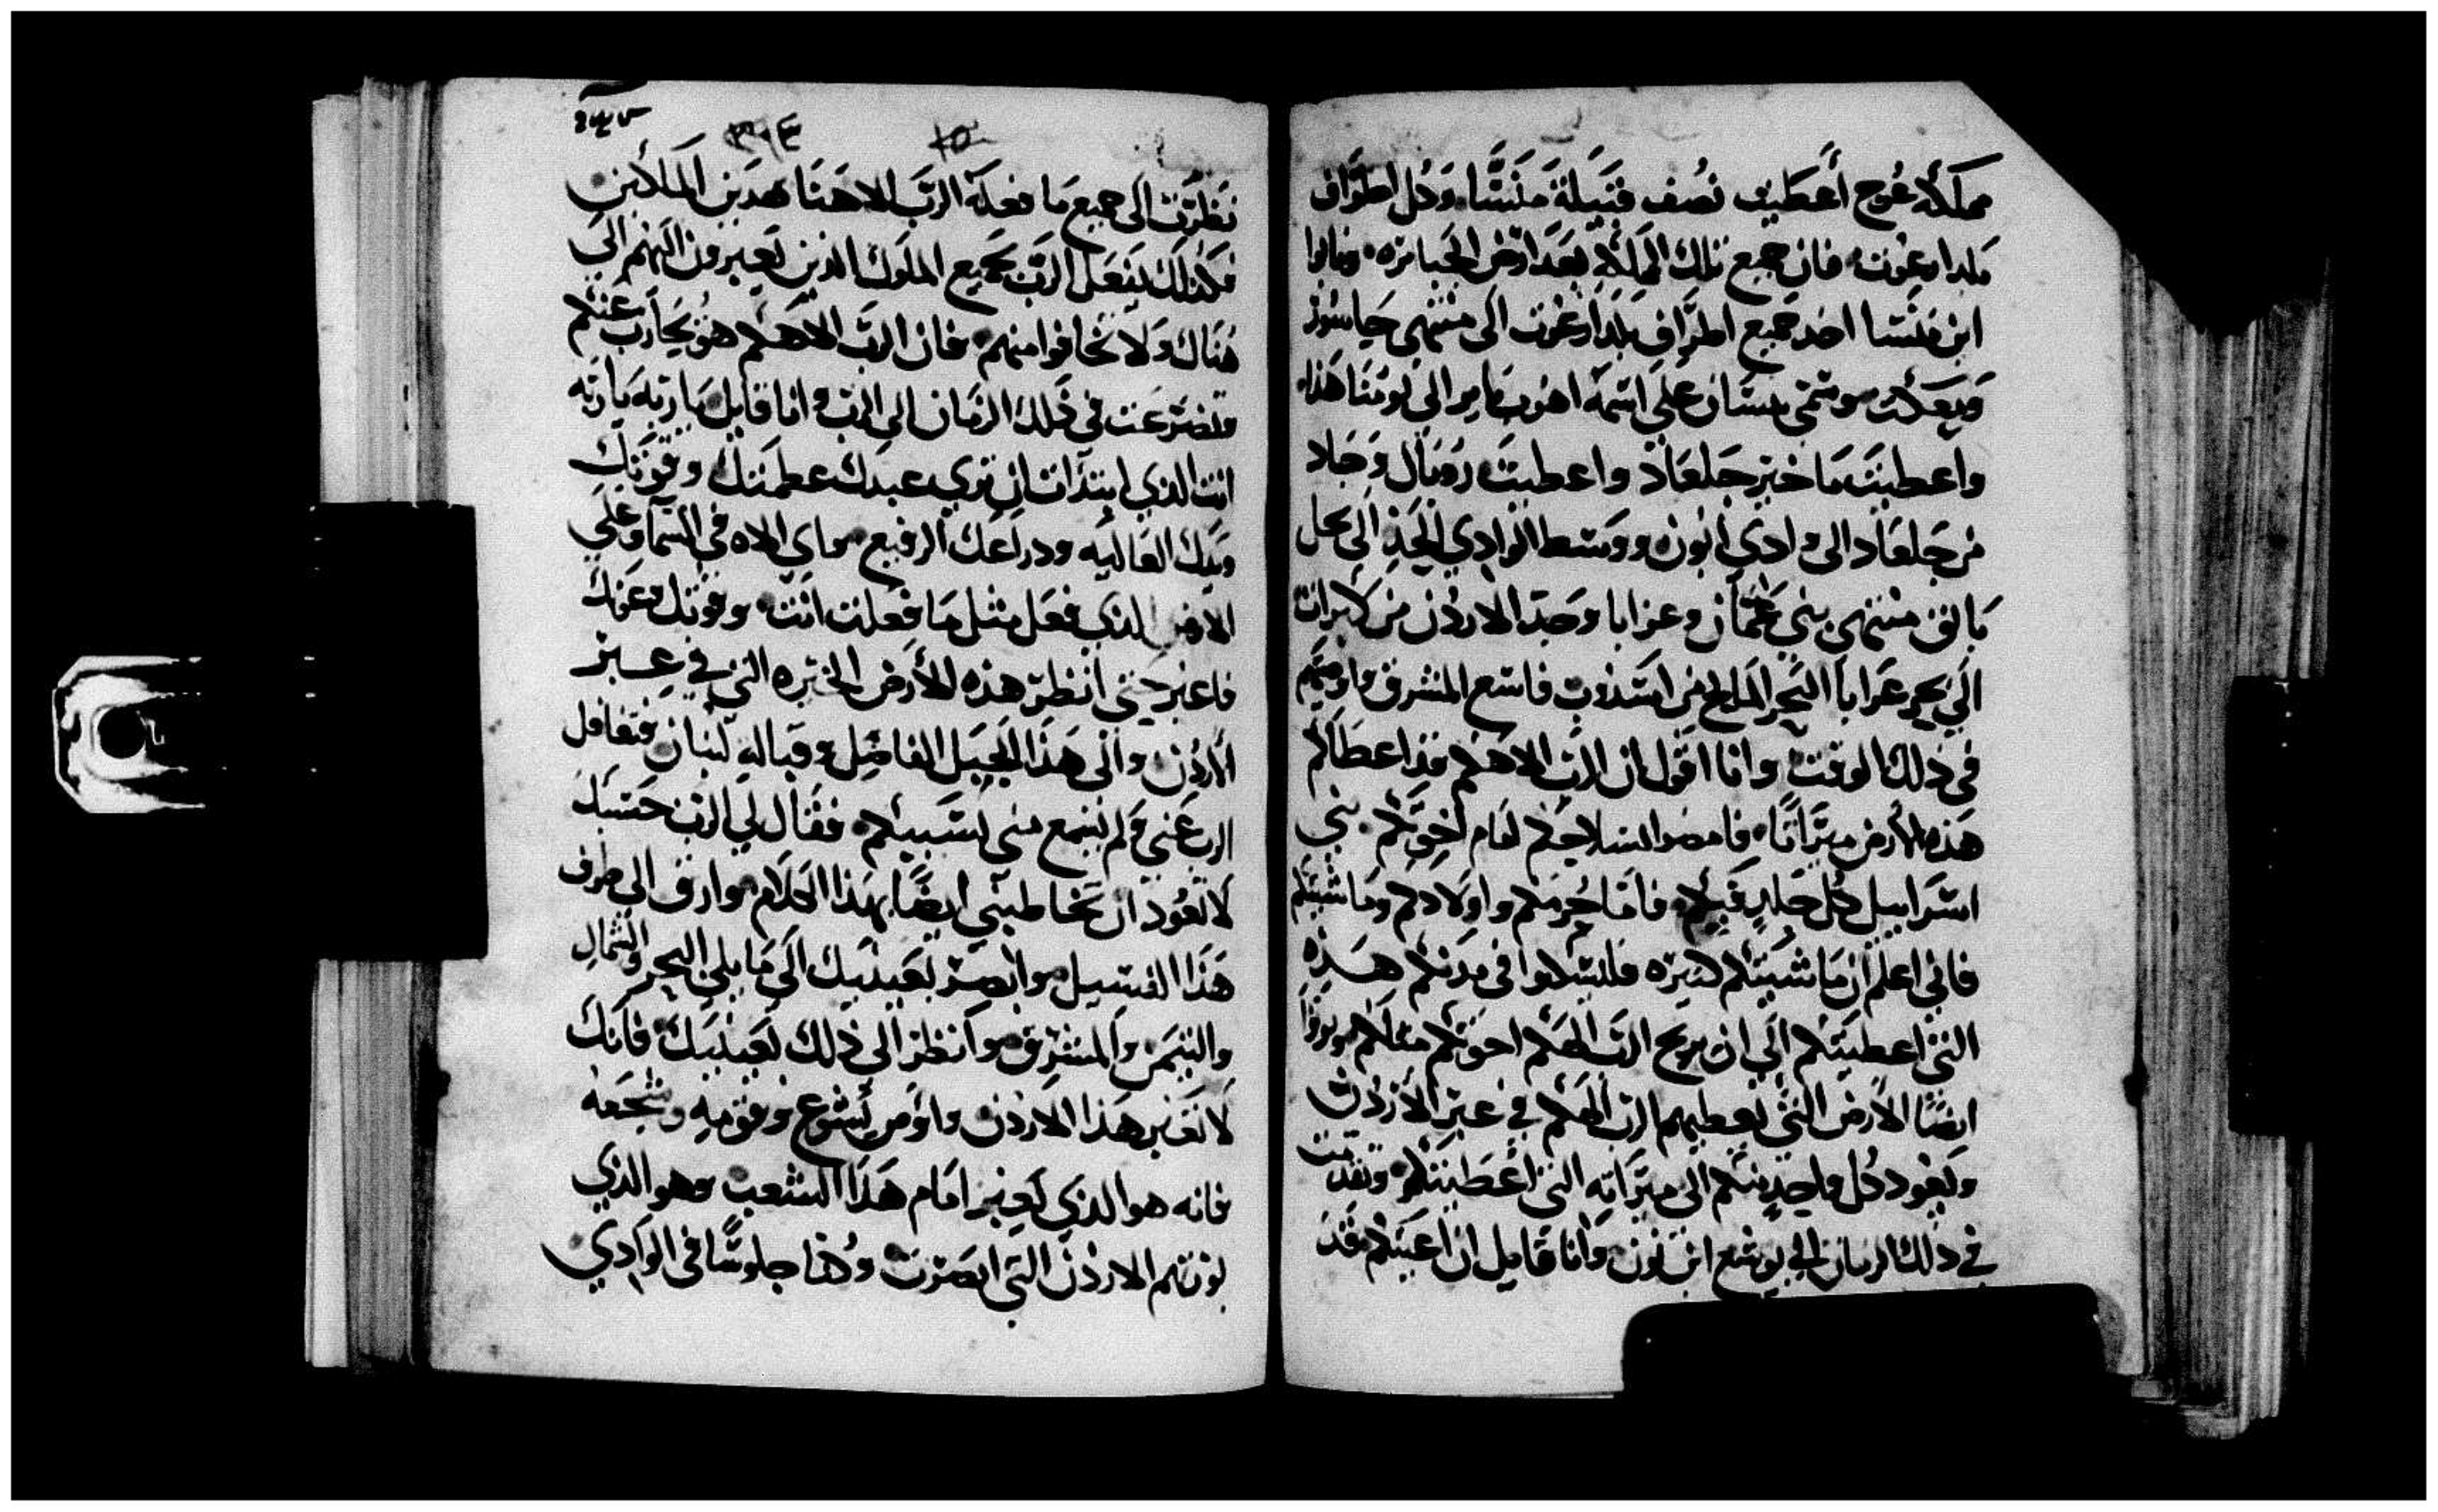 مملكة عوج أعطيت نصف قبيلة منشا. وكل اطراف
بلد ارغوت. فان جميع تلك المملكة يعد ارض الجبابره.
ابن منشا اخد جميع اطراف بلد ارغوت الى منتهى
على اسمه الى يومنا هذا.
واعطيت ماخير جلعاد واعطيت روبال وجاد
من جلعاد الى وادي ارنون ووسط الوادي الحد الى كل
يابق منتهى بني عمان وعرابا وحد الاردن من
الى بحر عرابا البحر المالح من المشرق واوصيتكم
في ذلك الوقت وانا اقول ان الرب الاهكم قد اعطاكم
هذه الأرض ميراثا. فامضوا امام اخوتكم. بني
اسراييل كل فاما حرمكم واولادكم وماشيتكم
فاني اعلم ان ماشيتكم كثيره في مدنكم هذه
التي اعطيتكم الى ان يريح الرب الهكم اخوتكم مثلكم
ايضا الأرض التي يعطيهم الرب الهكم في عبر الأردن
ويعود كل واحد منكم الى ميراثه التي أعطيتكم. وتقدمت
في ذلك الزمان الى يوشع ابن نون وانا قايل ان اعينكم قد
٣٠٤
نظرت الى جميع ما فعله الرب الاهنا بهدين الملكين
فكذلك يفعل الرب بجميع الملوك الذين تعبرون اليهم الى
هناك ولا تخافوا منهم. فان الرب الاهكم هو يحارب عنكم
وتضرعت في ذلك الزمان الى الرب وانا قايل يا ربه يا ربه
انت الذي ابتدات ان تري عبدك عظمتك وقوتك
ويدك العاليه ودراعك الرفيع. واي الاه في السما وعلى
الارض الذي فعل مثل ما فعلت انت. وقوتك
فاعبر حتى انظر هذه الأرض الخيره التي في عبر
الأردن والى هذا الجبل الفاضل لبنان فتغافل
الرب عني ولم يسمع مني بسببكم. فقال لي الرب حسبك
لا تعود ان تخاطبني ايضا بهذا الكلام وارق الى طرف
هذا وابصر بعينيك الى ما يلي البحر والشمال
والتيمن والمشرق وانظر الى ذلك بعينيك فانك
لا تعبر هذا الاردن واؤمر يشوع وقويه وشجعه
فانه هو الذي يعبر امام هذا الشعب وهو الذي
يورثهم الاردن التي ابصرت وكنا جلوسا في الوادي